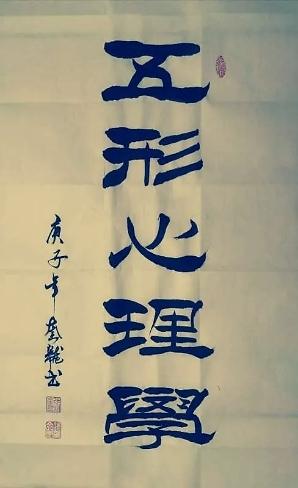 五形心理學
庚子年 奎龍书